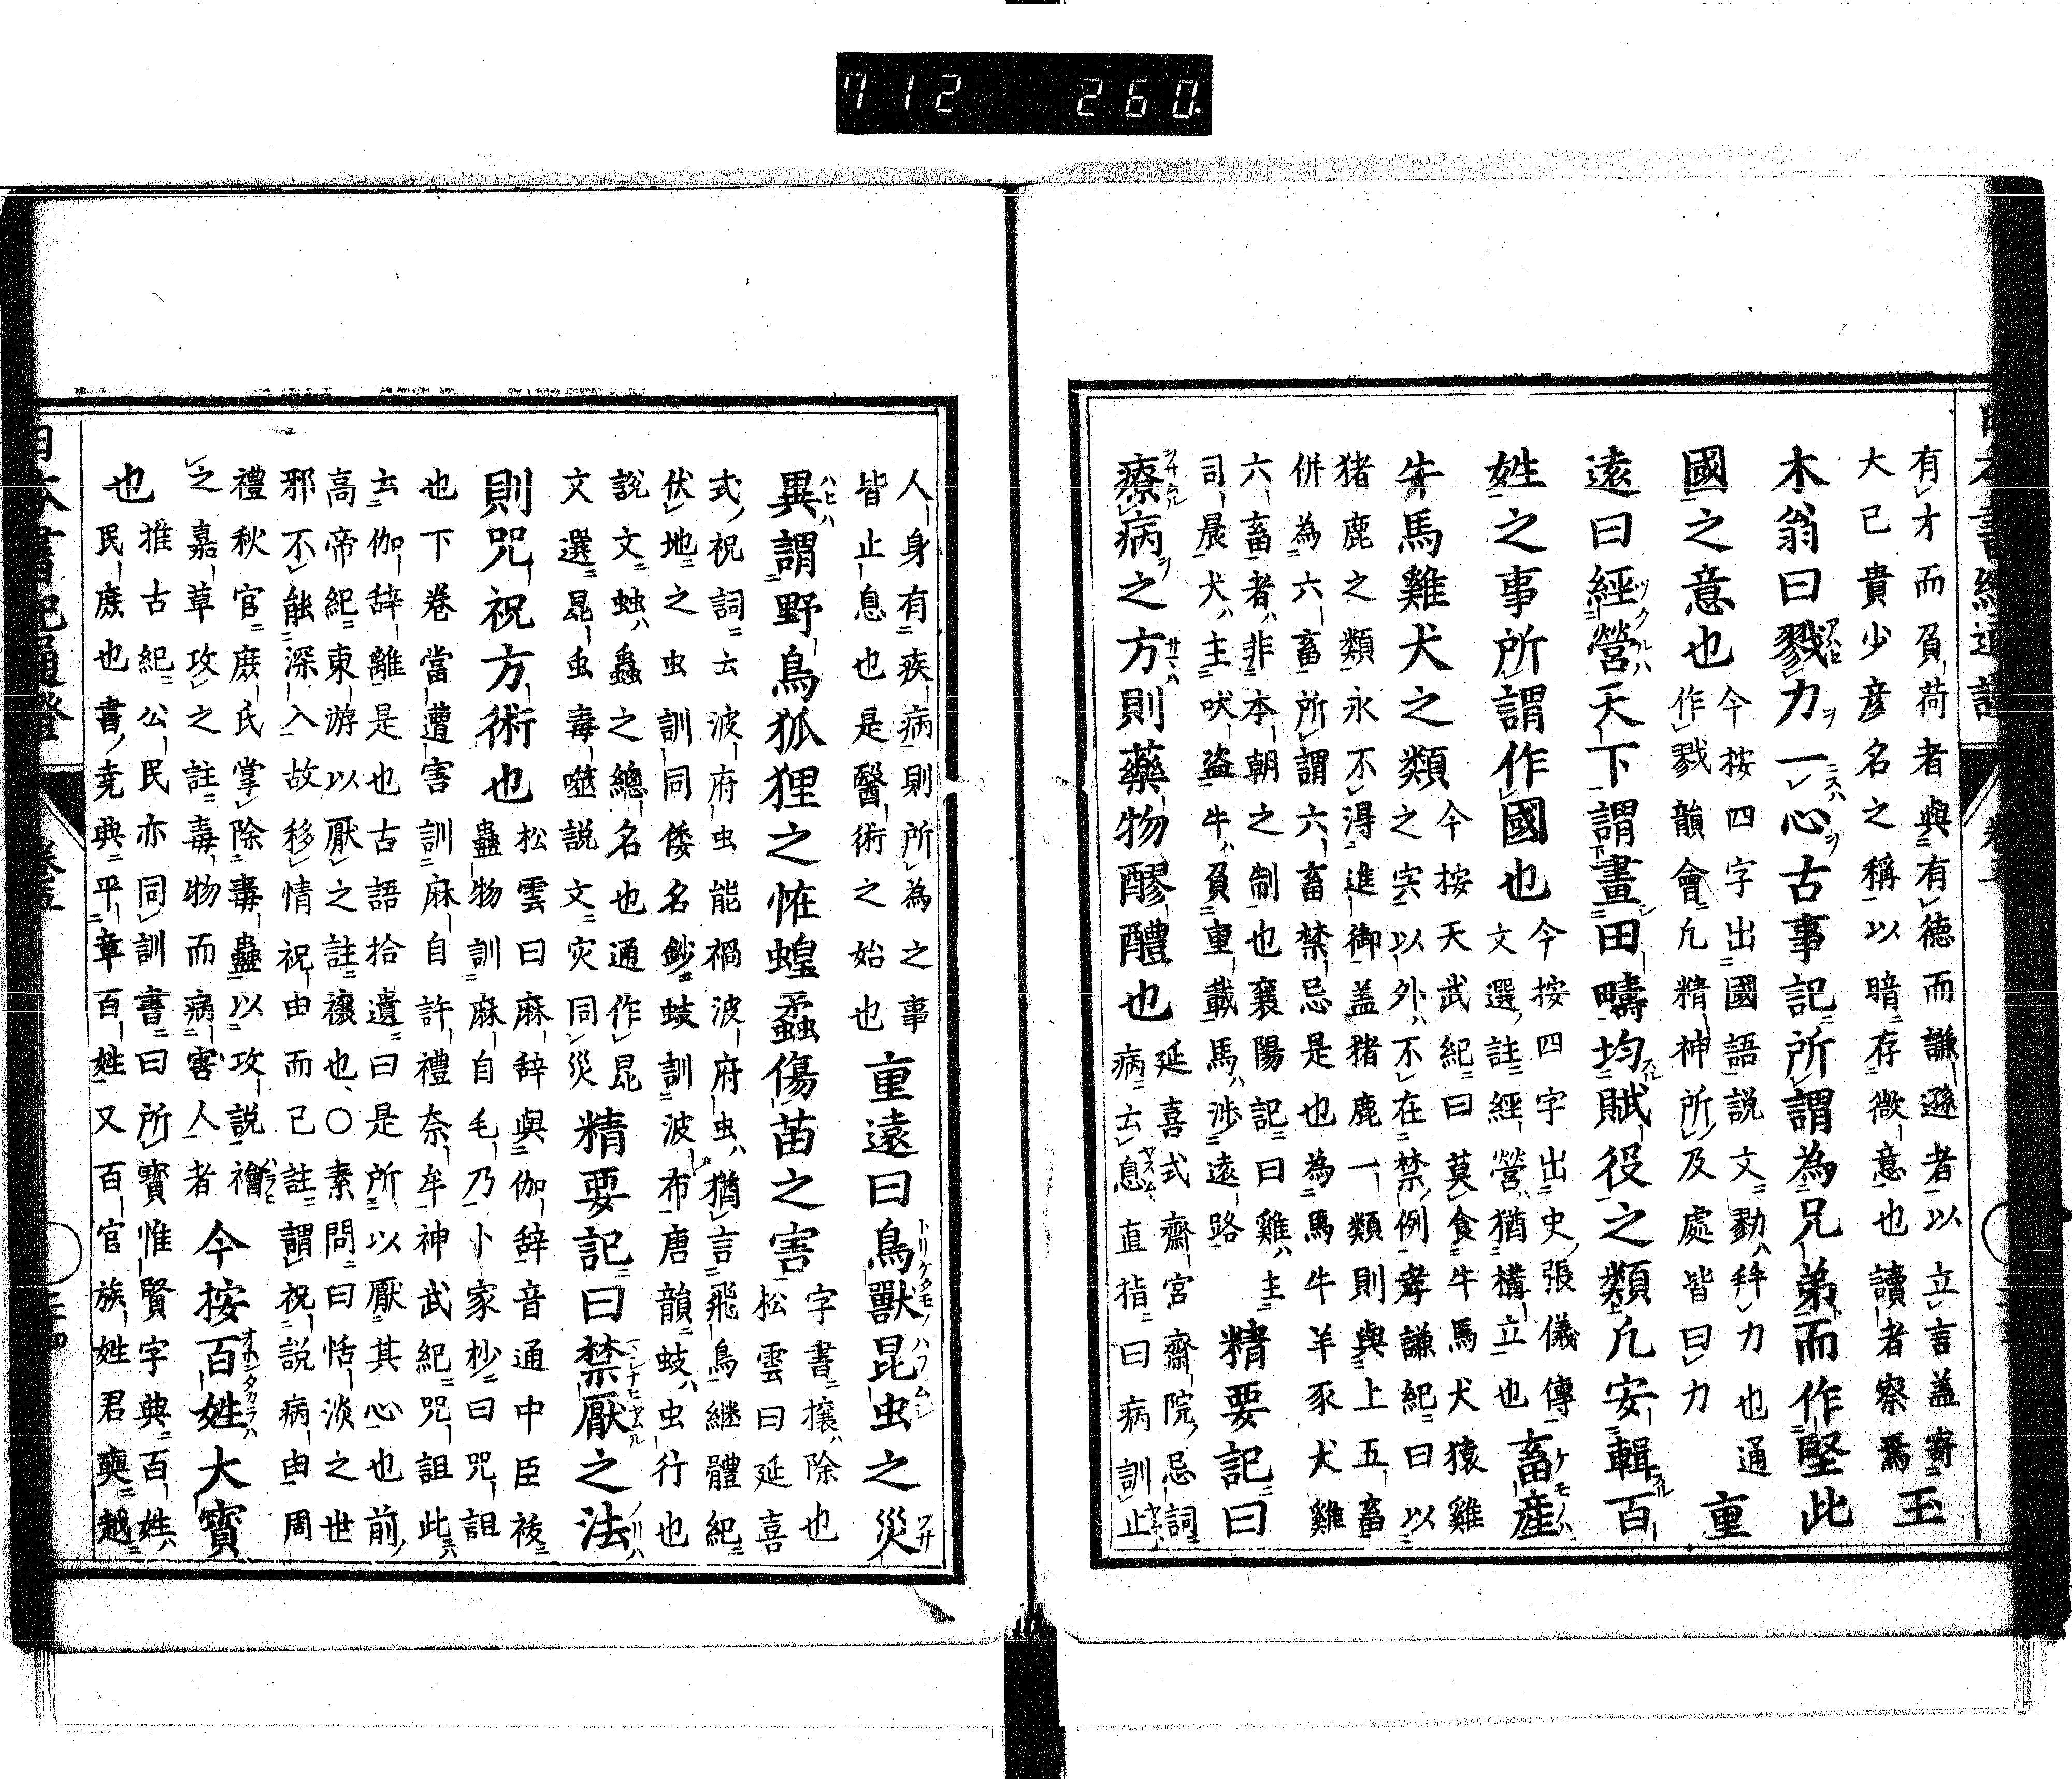 712 260
有才而負荷者與有徳而謙遜者以立言盖寄
大已貴少彦名之稱以暗存微意也讀者察焉
玉
木翁曰戮力一心古事記所謂為兄弟而作堅此
國之意也
今按四字出國語説文勠幷力也通
作戮韻會凢精神所及處皆曰力
重
遠曰經營天下謂畫田疇均賦役之類凢安輯百
姓之事所謂作國也
今按四字出史張儀傳
文選註經營猶構立也
畜産
牛馬雞犬之類
今按天武紀曰莫食牛馬犬猿雞
之宍以外不在禁例孝謙紀曰以
猪鹿之類永不淂進御盖猪鹿一類則與上五畜
併為六畜所謂六畜禁忌是也為馬牛羊豕犬雞
六畜者非本朝之制也襄陽記曰雞主
司晨犬主吠盗牛負重載馬渉遠路
精要記曰
療病之方則藥物醪醴也
延喜式齋宮齋院忌詞
病云息直指曰病訓止
人身有疾病則所為之事
皆止息也是醫術之始也
重遠曰鳥獸昆虫之災
異謂野鳥狐狸之恠蝗蠧傷苗之害
字書攘除也
松雲曰延喜
式祝詞云波府虫能禍波府虫猶言飛鳥継體紀
伏地之虫訓同倭名鈔蚑訓波布唐韻蚑虫行也
說文蚰蟲之總名也通作昆
文選昆虫毒噬説文灾同災
精要記曰禁厭之法
則咒祝方術也
松雲曰麻辞與伽辞音通中臣祓
蠱物訓麻自毛乃卜家杪曰咒詛
也下巻當遭害訓麻自許禮奈牟神武紀咒詛此
云伽辞離是也古語拾遺曰是所以厭其心也前
高帝紀東游以厭之註禳也○素問曰恬淡之世
邪不能深入故移情祝由而已註謂祝説病由周
禮秋官庶氏掌除毒蠱以攻説禬
之嘉草攻之註毒物而病害人者
今按百姓大寳
也
推古紀公民亦同訓書曰所寳惟賢字典百姓
民庶也書尭典平章百姓又百官族姓君奭越
日本書紀通證 巻五